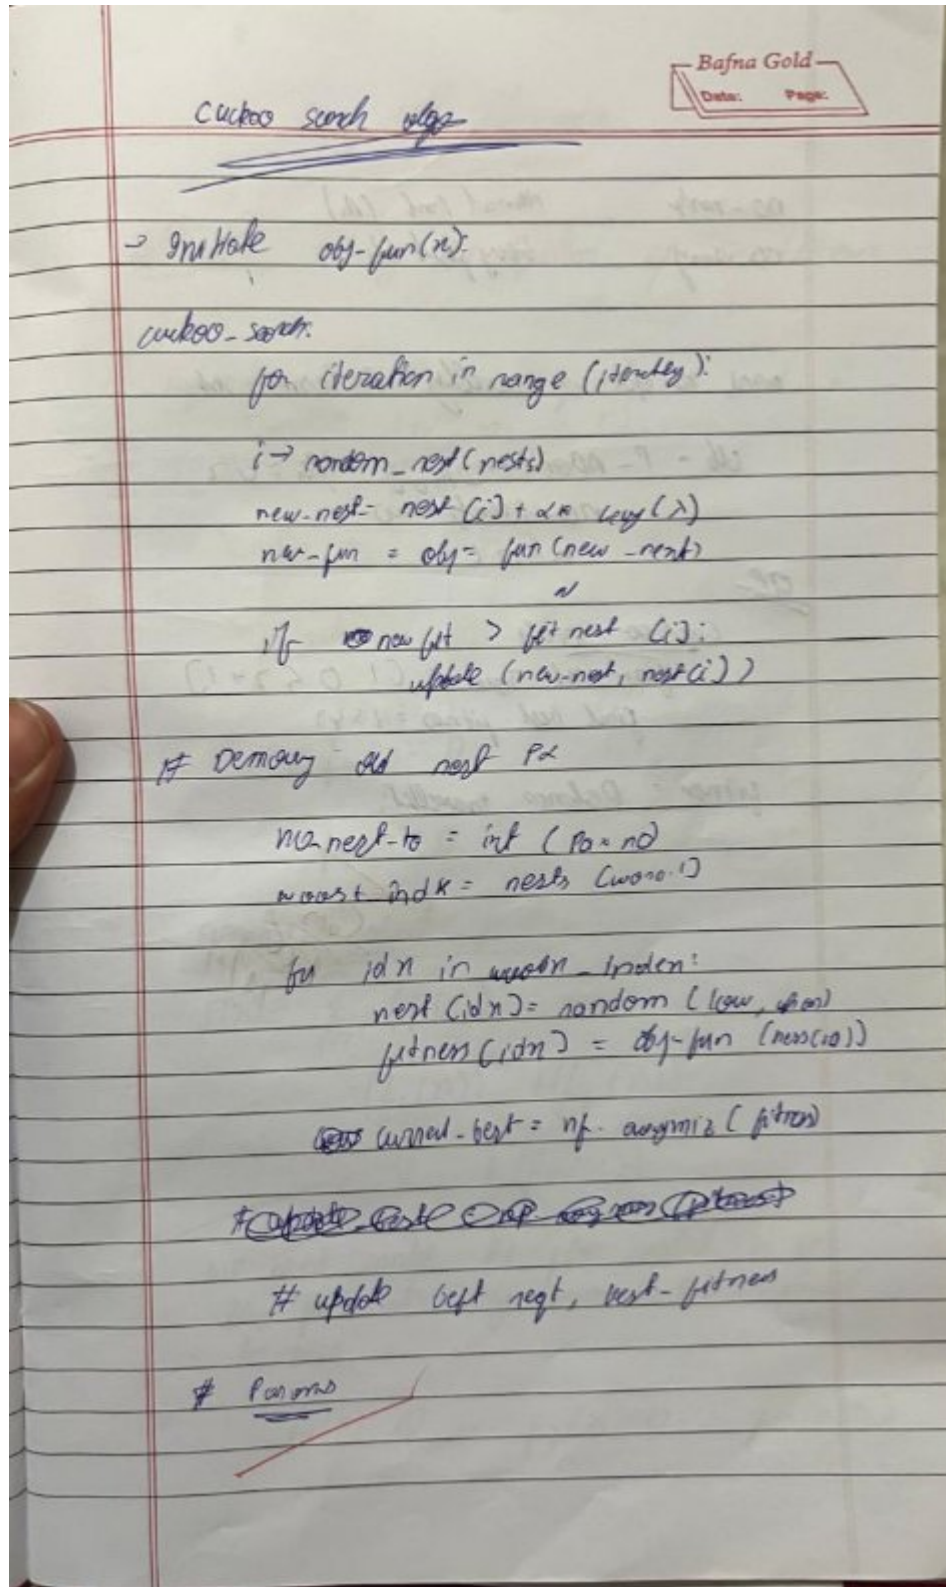 Bafna Gold
Date: Page:
Cuckoo search algo
→ Initiate obj-fun(x):
cuckoo-search:
for iteration in range (iteration):
i → random_nest(nests)
new-nest = nest (i) + α* levy(λ)
new-fun = obj = fun (new-nest)
if new fit > fit nest (i):
update (new-nest, nest(i))
# old nest Pα
no-nest-to = int (Pa * no)
worst indx = nests
for idx in _index:
nest (idx) = random (low,
fitness (idx) = obj-fun
current-best = np. argmin (fitness)
# update best nest, best-fitness
# Params